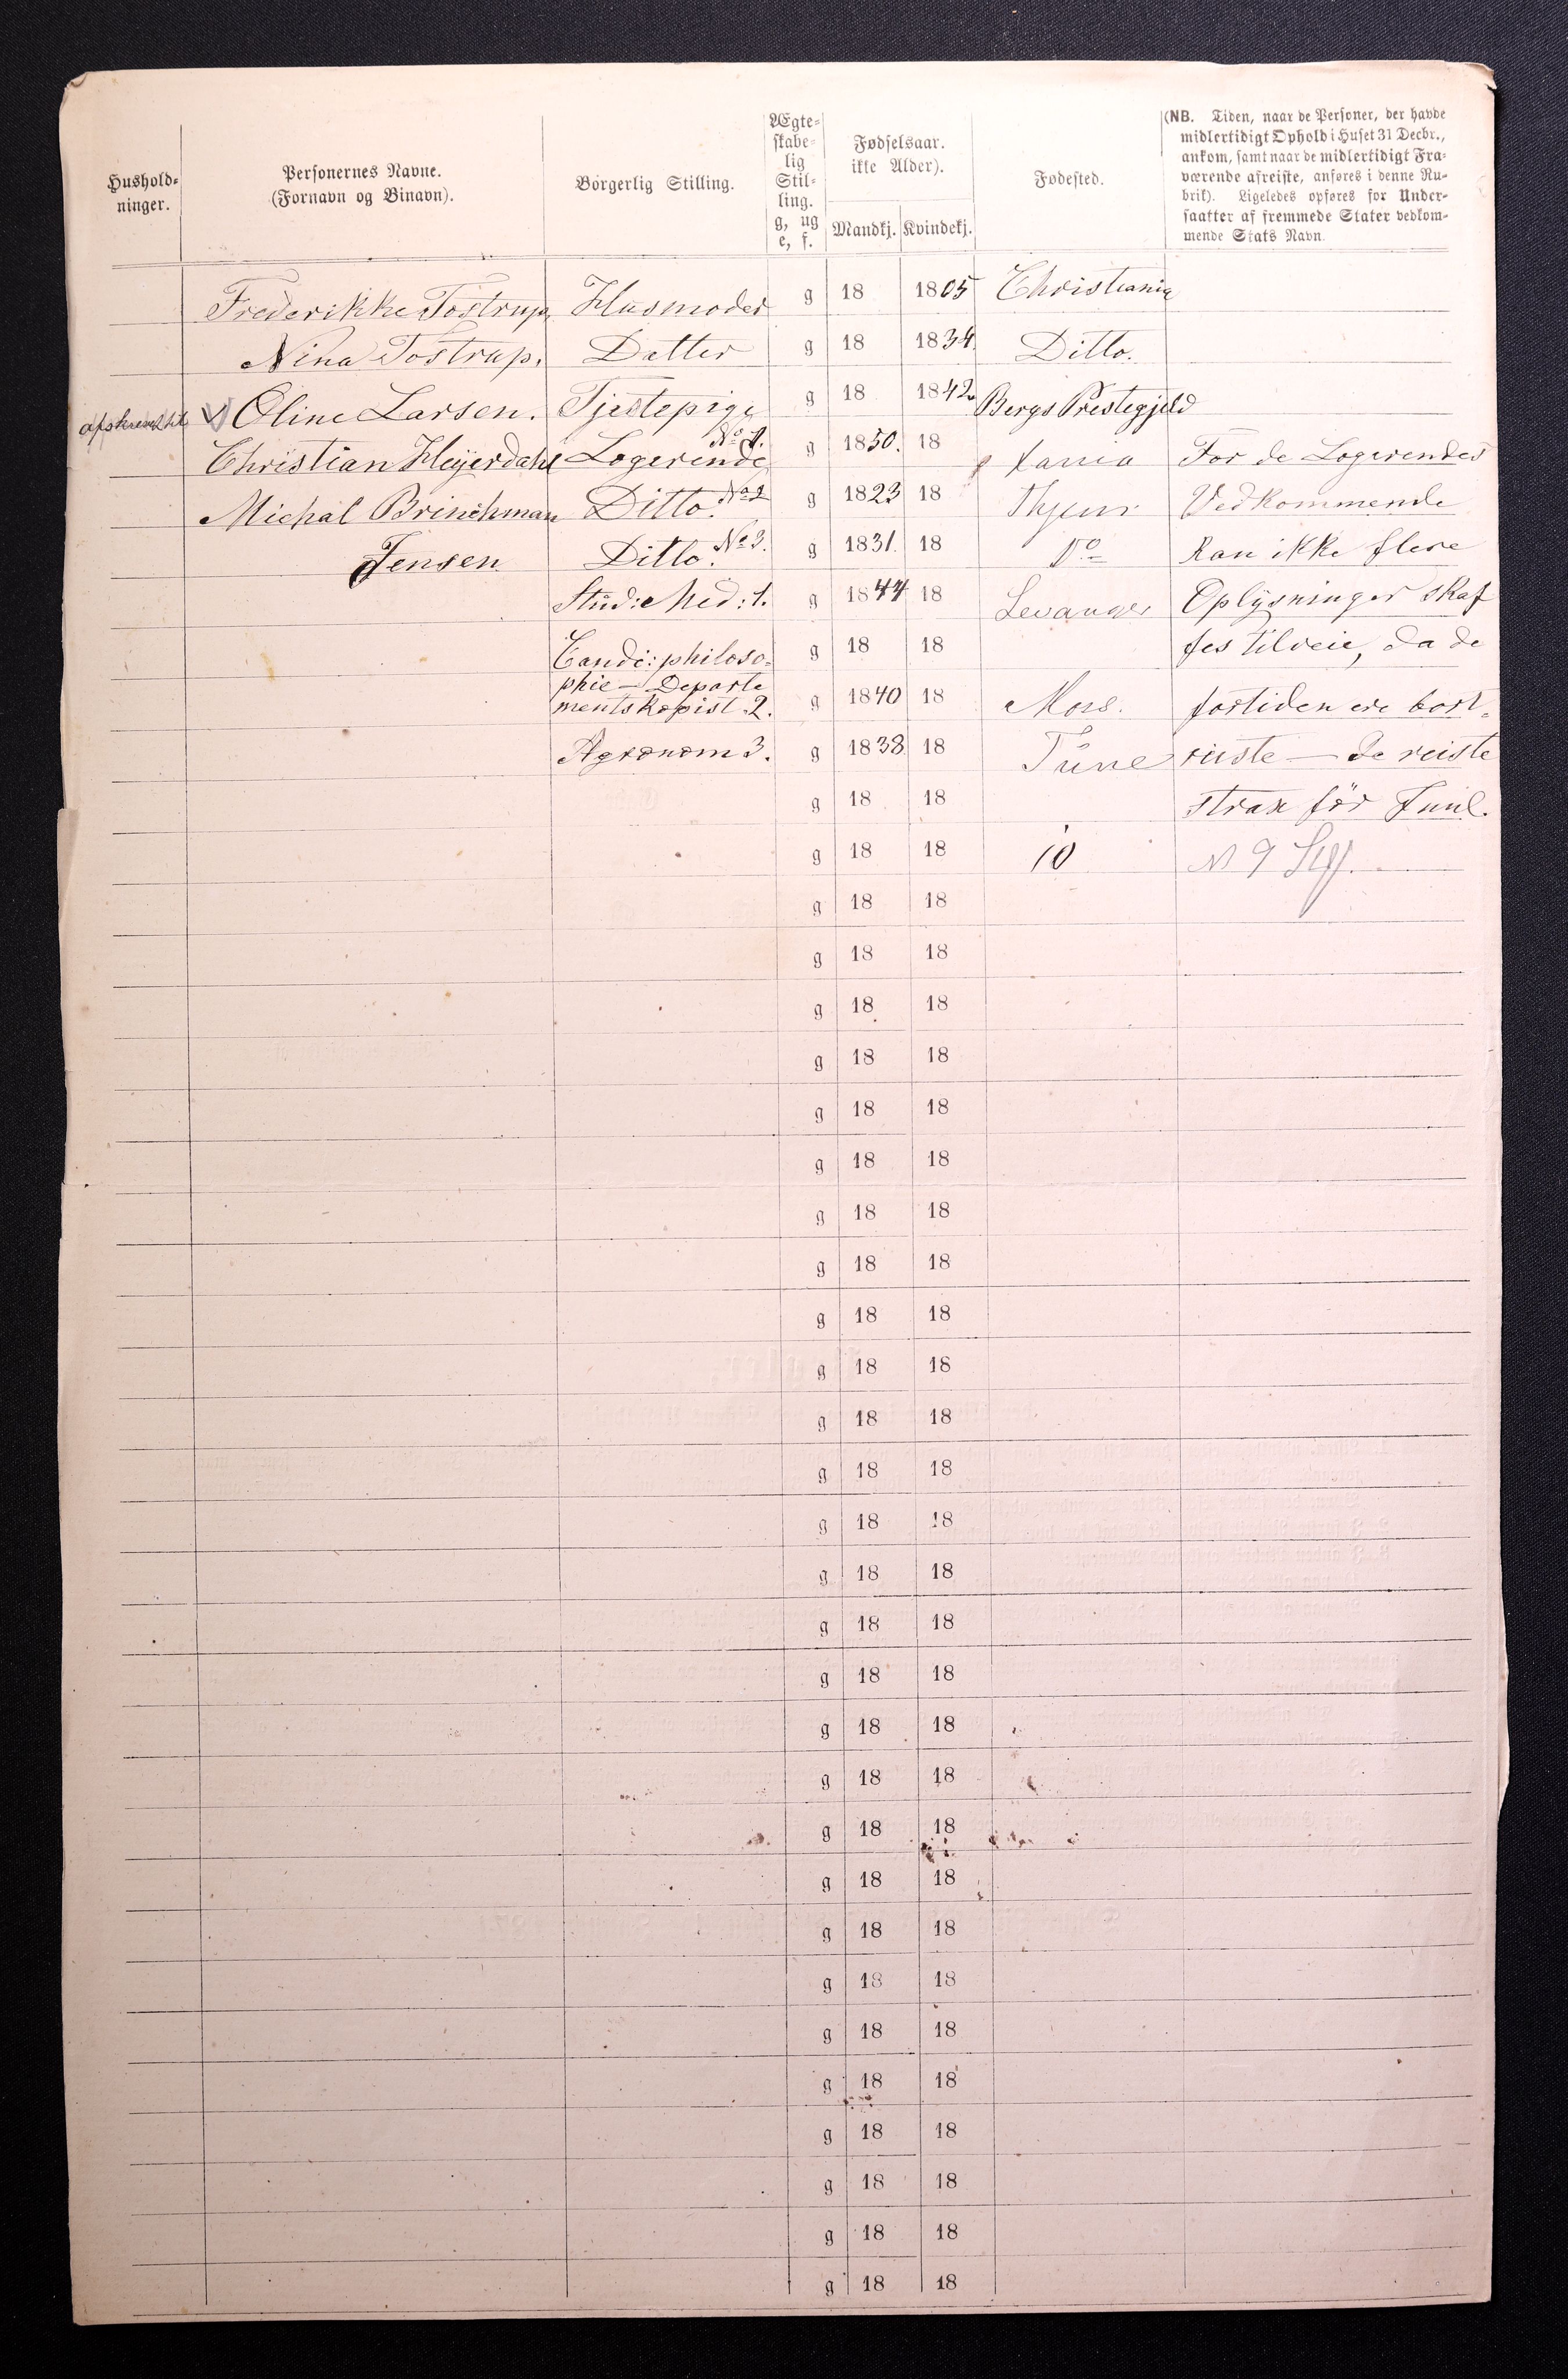 Hushold-
ninger.
Personernes Navne.
(Fornavn og Binavn).
Borgerlig Stilling.
Ægte-
skabe-
lig
Stil-
ling.
g, ug
e, f.
Fødselsaar.
ikke Alder).
Mandkj. Kvindekj.
Fødested.
(NB. Tiden, naar de Personer, der havde
midlertidigt Ophold i Huset 31 Decbr.,
ankom, samt naar de midlertidigt Fra-
værende afreiste, anføres i denne Ru-
brik). Ligeledes opføres for Under-
saatter af fremmede Stater vedkom-
mende Stats Navn.
Frederikke Tostrup Husmoder g 18 1805 Christiania
Nina Tostrup. Datter g 18 1834. Ditto.
Oline Larsen. Tjestepige g 18 1842. Bergs Prestegjeld
Christian Heyerdahl Logerende No 1. g 1850. 18 Xania For de Logerendes
Michal Brinchman Ditto. No 2 g 1823 18 Vedkommende
Jensen Ditto. No 3. g 1831. 18 Do kan ikke flere
Stud: Med: 1. g 1844 18 Levanger Oplysninger skaf
Candi: philoso- g 18 18 fes tilveie, da de
phie — Departe
mentskopist 2. g 1840 18 Moss. fortiden ere bort-
Agronom 3. g 1838 18 Tune reiste — de reiste
g 18 18 strax før Juul.
g 18 18 10
g 18 18
g 18 18
g 18 18
g 18 18
g 18 18
g 18 18
g 18 18
g 18 18
g 18 18
g 18 18
g 18 18
g 18 18
g 18 18
g 18 18
g 18 18
g 18 18
g 18 18
g 18 18
g 18 18
g 18 18
g 18 18
g 18 18
g 18 18
g 18 18
g 18 18
g 18 18
g 18 18
g 18 18